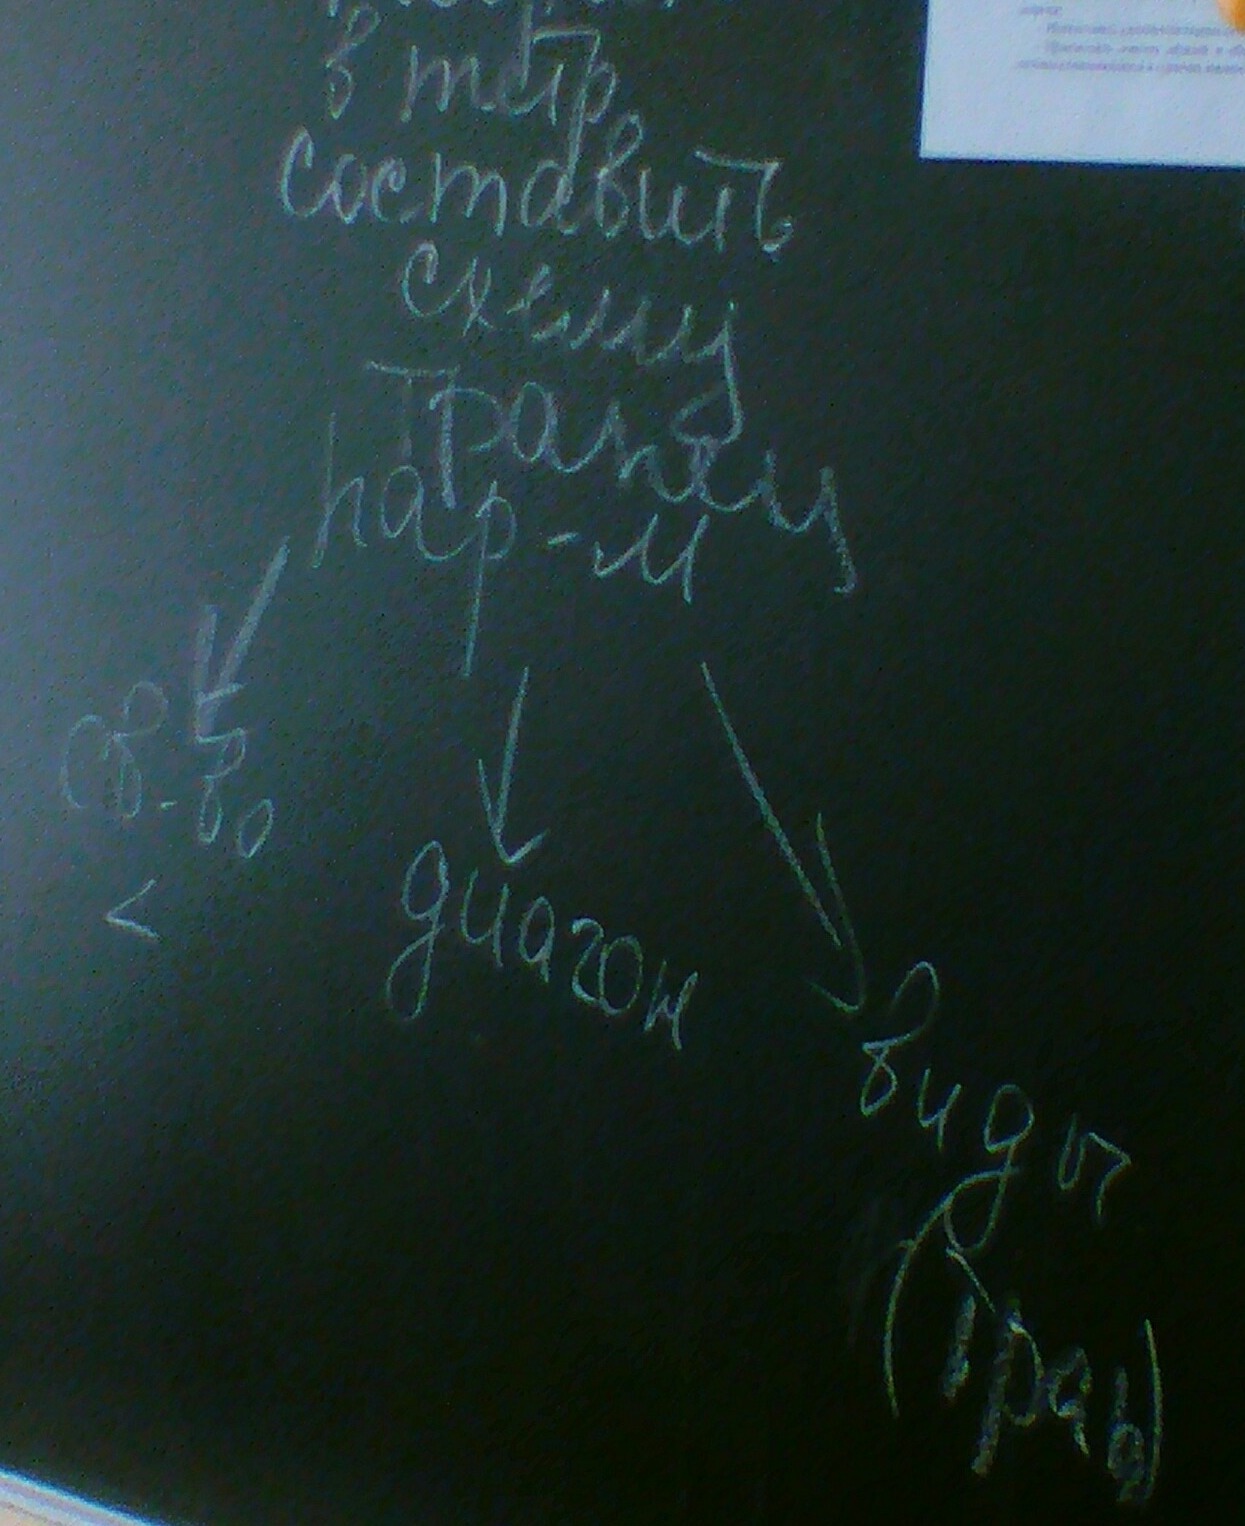 в тетр.
составить
схему
Трапец
пар-м
св-во
<
диагон
виды